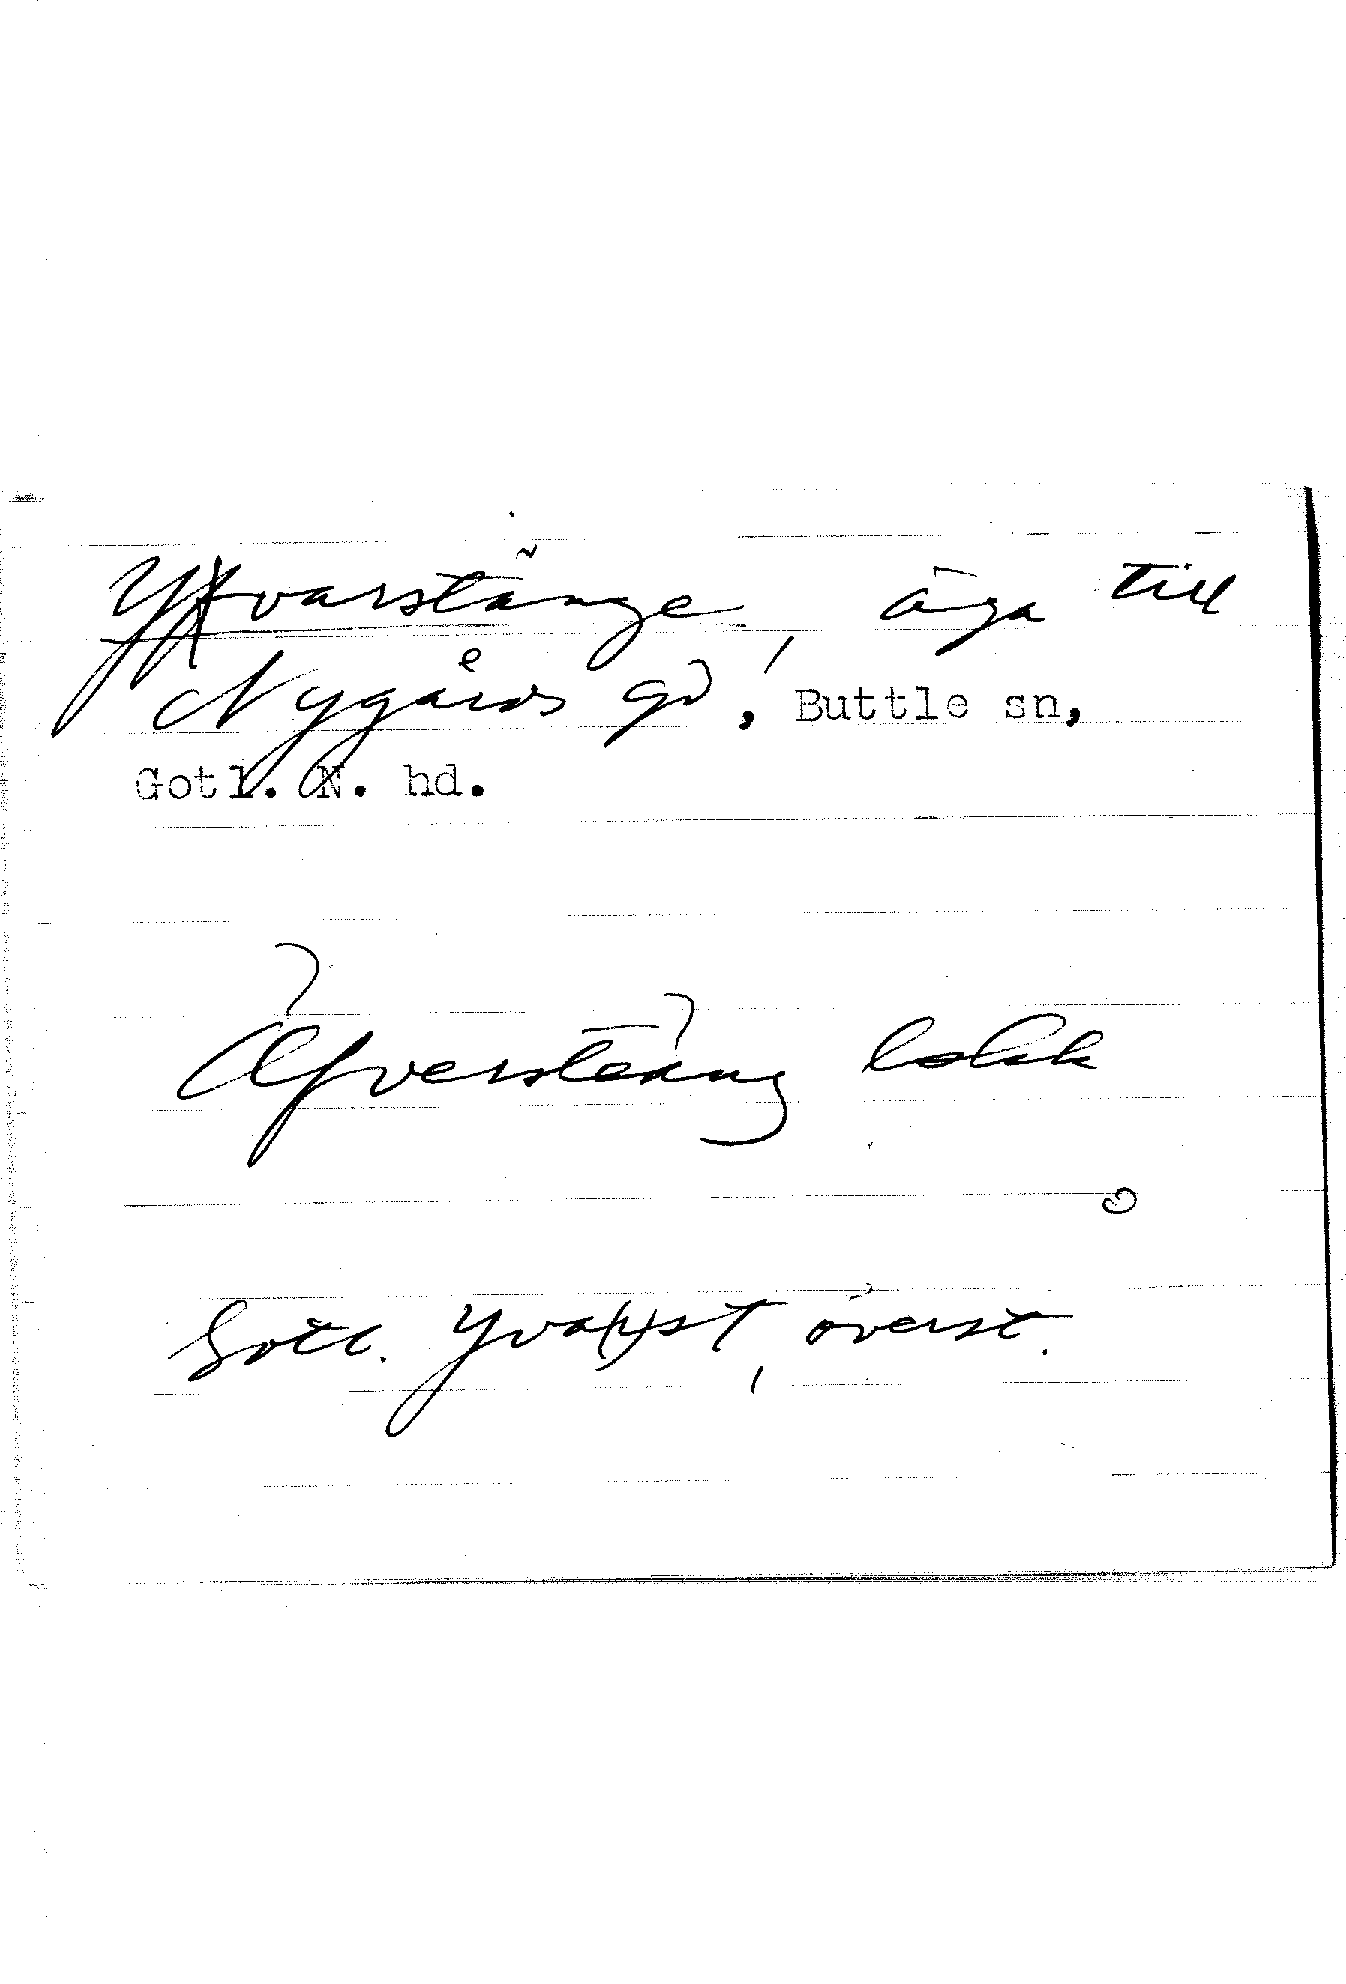 Yvarstänge, äga till
Nygårds gd, Buttle sn,
Gotl. N. hd.
Äfverstäng
Gotl. Yva(r)st, överst.